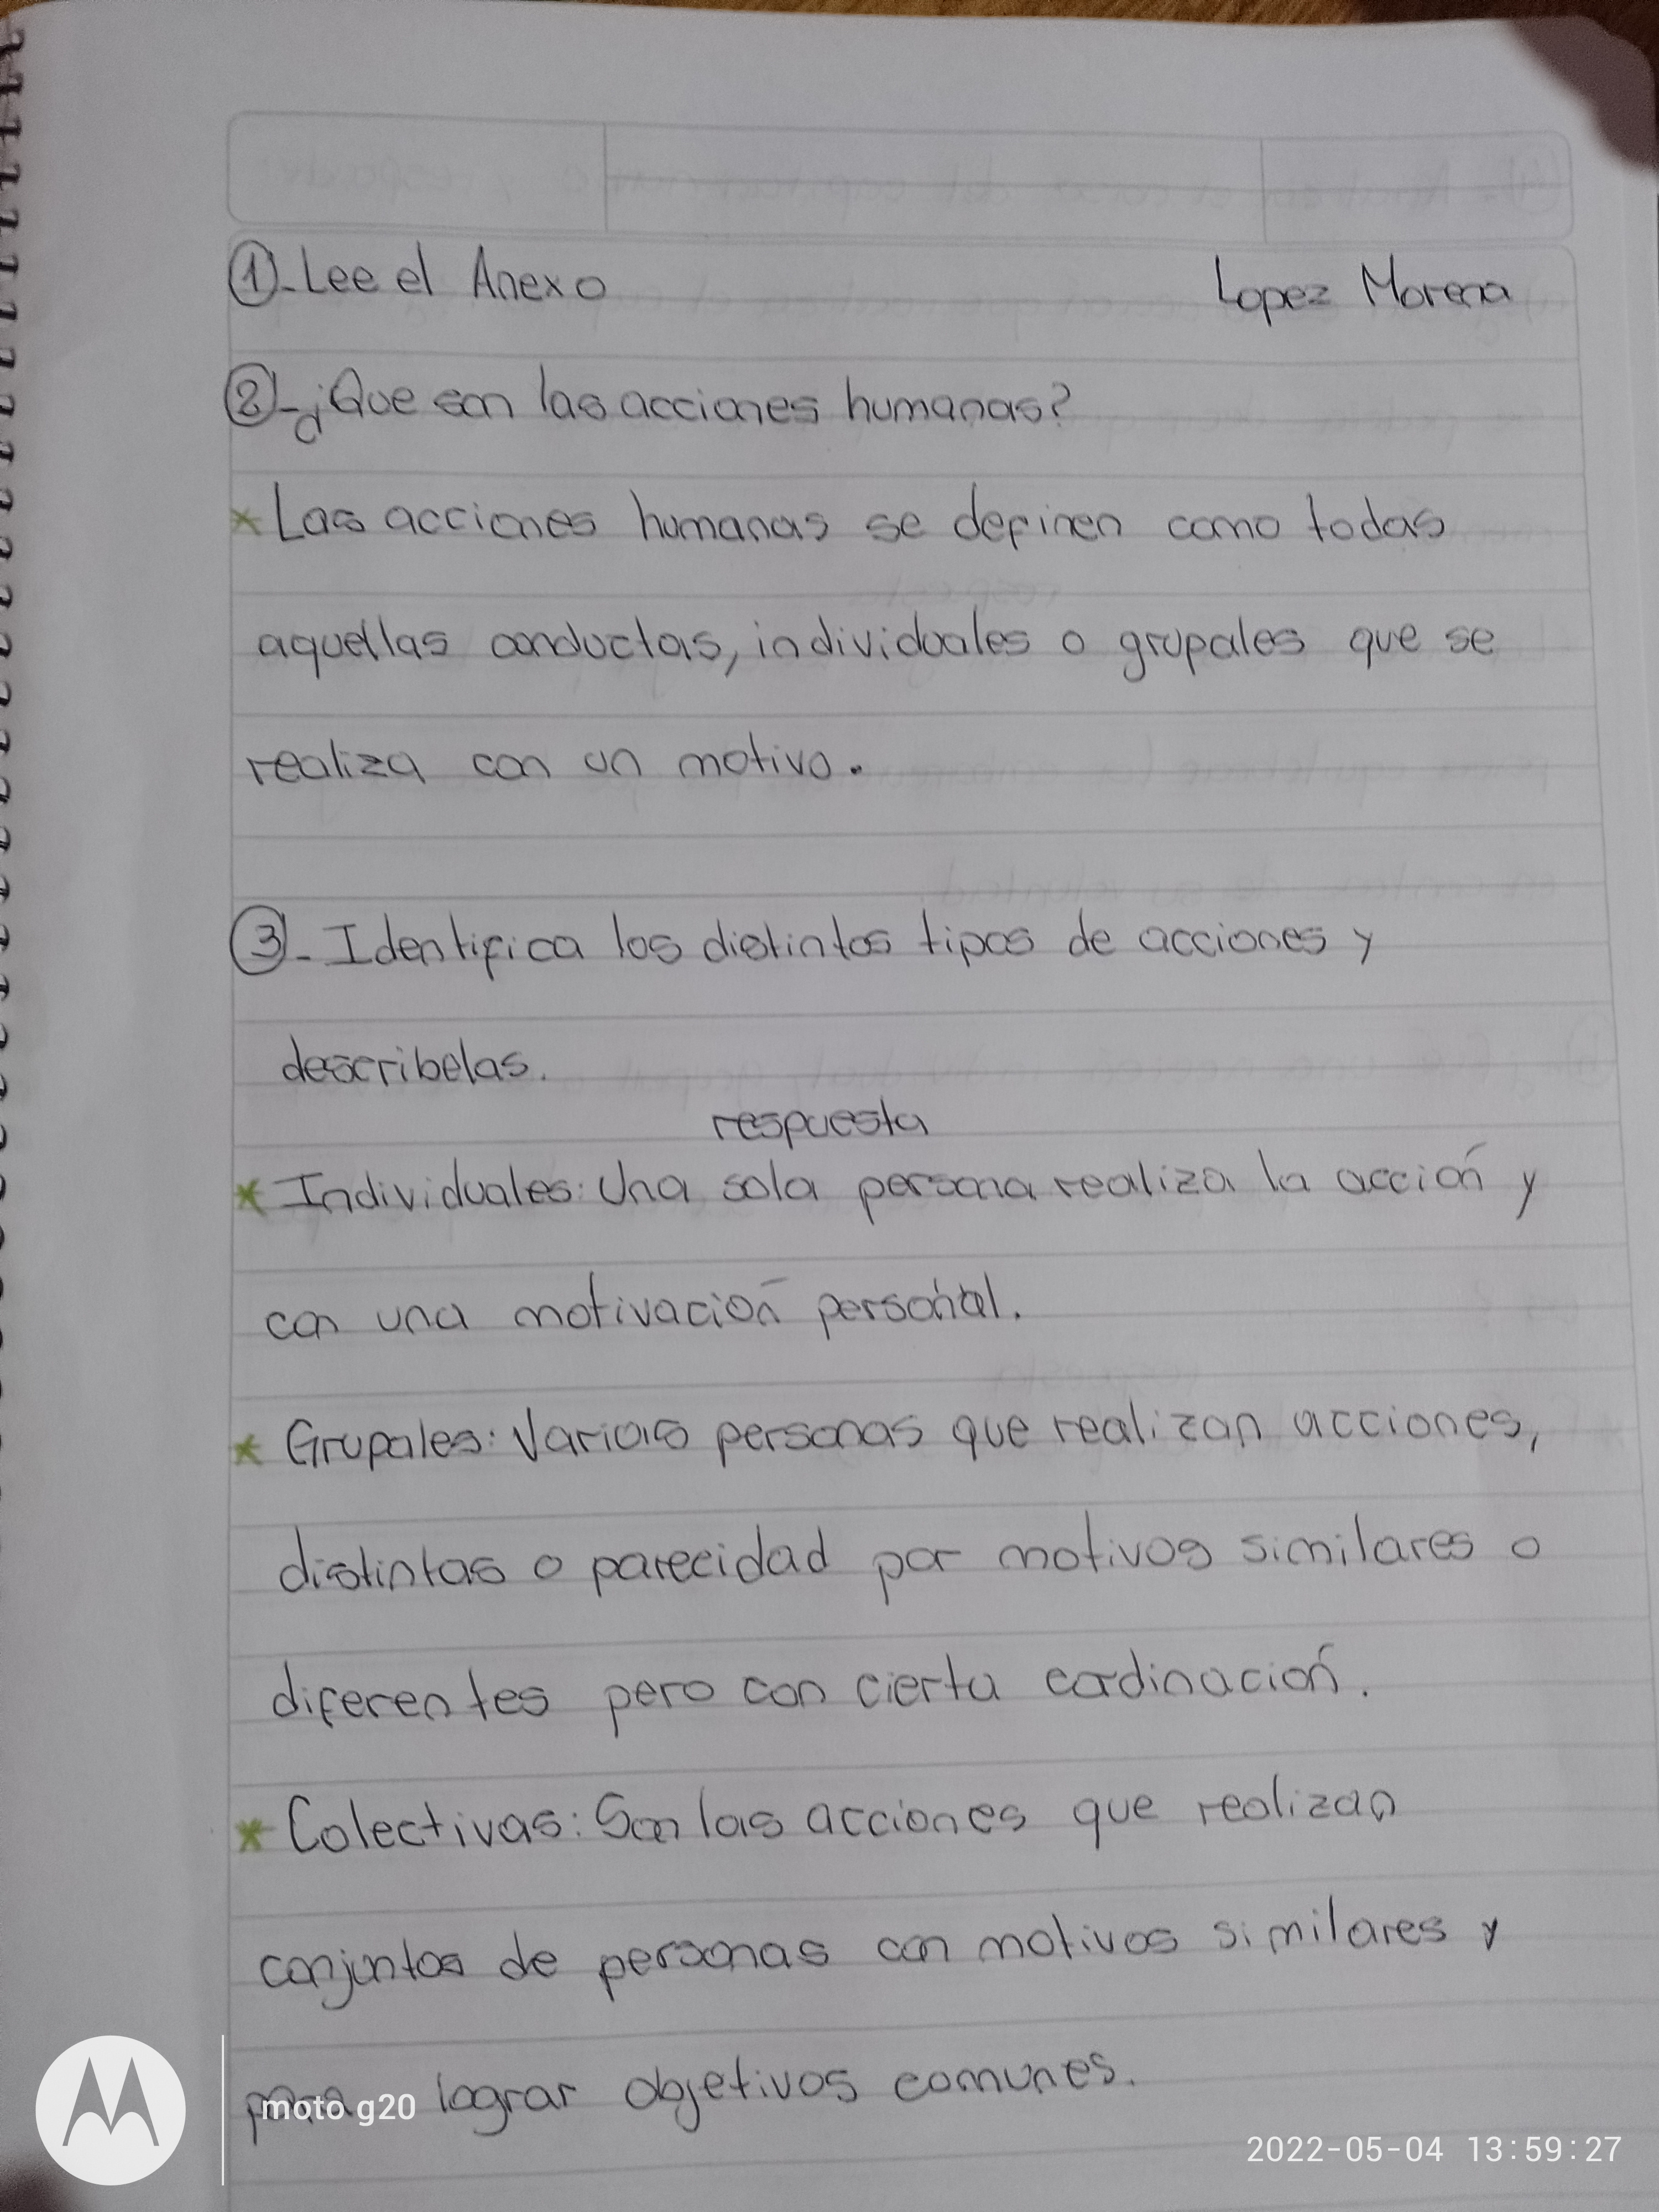 ①-Lee el Anexo Lopez Morena
②-¿Que son las acciones humanas?
* Las acciones humanas se definen como todas
aquellas conductas, individuales o grupales que se
realiza con un motivo.
③- Identifica los distintos tipos de acciones y
describelas.
respuesta
* Individuales: Una sola persona realiza la acción y
con una motivación personal.
* Grupales: Varias personas que realizan acciones,
distintas o parecidad por motivos similares o
diferentes pero con cierta cordinación.
* Colectivas: Son las acciones que realizan
conjuntos de personas con motivos similares y
para lograr objetivos comunes.
moto g20
2022-05-04 13:59:27